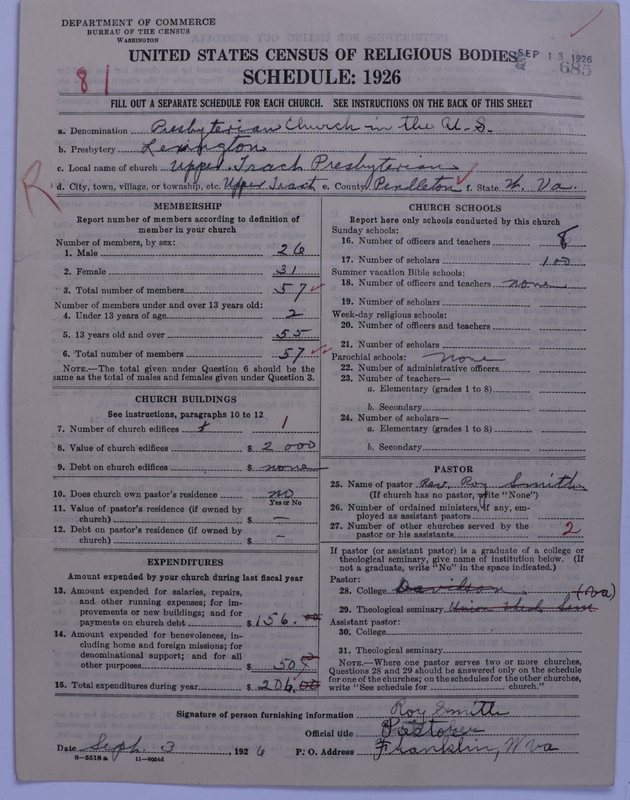 DEPARTMENT OF COMMERCE
BUREAU OF THE CENSUS
WASHINGTON
UNITED STATES CENSUS OF RELIGIOUS BODIES
SEP 13 1926
685
SCHEDULE: 1926
81
FILL OUT A SEPARATE SCHEDULE FOR EACH CHURCH. SEE INSTRUCTIONS ON THE BACK OF THIS SHEET
a. Denomination Presbyterian Church in the U.S.
b. Presbytery Lexington
c. Local name of church Upper Tract Presbyterian
R
d. City, town, village, or township, etc. Upper Tract e. County Pendleton f. State W. Va.
MEMBERSHIP
Report number of members according to definition of
member in your church
Number of members, by sex:
1. Male 26
2. Female 31
3. Total number of members 57
Number of members under and over 13 years old:
4. Under 13 years of age 2
5. 13 years old and over 55
6. Total number of members 57
NOTE.—The total given under Question 6 should be
same as the total of males and females given under Question 3.
CHURCH BUILDINGS
See instructions, paragraphs 10 to 12
7. Number of church edifices 1
8. Value of church edifices $ 2000
9. Debt on church edifices $ none
10. Does church own pastor's residence no
Yes or No
11. Value of pastor's residence (if owned by
church) $ —
12. Debt on pastor's residence (if owned by
church) $ —
EXPENDITURES
Amount expended by your church during last fiscal year
13. Amount expended for salaries, repairs,
and other running expenses; for im-
provements or new buildings; and for
payments on church debt $ 156.00
14. Amount expended for benevolences, in-
cluding home and foreign missions; for
denominational support; and for all
other purposes $ 50
15. Total expenditures during year $ 206.00
CHURCH SCHOOLS
Report here only schools conducted by this church
Sunday schools:
16. Number of officers and teachers 8
17. Number of scholars 100
Summer vacation Bible schools:
18. Number of officers and teachers none
19. Number of scholars
Week-day religious schools:
20. Number of officers and teachers
21. Number of scholars
Parochial schools: None
22. Number of administrative officers
23. Number of teachers—
a. Elementary (grades 1 to 8)
b. Secondary
24. Number of scholars—
a. Elementary (grades 1 to 8)
b. Secondary
PASTOR
25. Name of pastor Rev. Roy Smith
(If church has no pastor, write "None")
26. Number of ordained ministers, if any, em-
ployed as assistant pastors
27. Number of other churches served by the
pastor or his assistants 2
If pastor (or assistant pastor) is a graduate of a college or
theological seminary, give name of institution below. (If
not a graduate, write "No" in the space indicated.)
Pastor:
28. College Davidson (Va)
29. Theological seminary Union Theol Sem
Assistant pastor:
30. College
31. Theological seminary
NOTE.—Where one pastor serves two or more churches,
Questions 28 and 29 should be answered only on the schedule
for one of the churches; on the schedules for the other churches,
write "See schedule for church."
Signature of person furnishing information Roy Smith
Official title Pastor
Date Sept. 3, 1926 P. O. Address Franklin, W Va
8—5518a 11—9056d